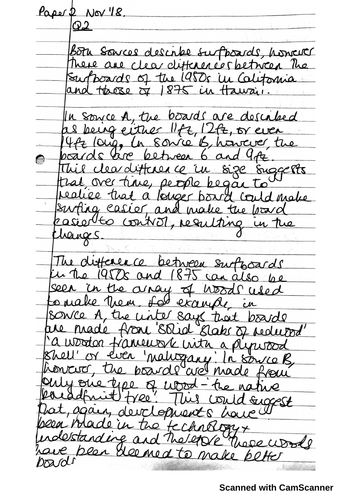 Paper 2 Nov '18.
Q2
Both sources describe surfboards, however
there are clear differences between the
surfboards of the 1950s in California
and those of 1875 in Hawaii.
In source A, the boards are described
as being either 11ft, 12ft, or even
14ft long. In source B, however, the
boards are between 6 and 9ft.
This clear difference in size suggests
that, over time, people began to
realise that a longer board could make
surfing easier, and make the board
easier to control, resulting in the
changes.
The difference between surfboards
in the 1950s and 1875 can also be
seen in the array of woods used
to make them. For example, in
source A, the writer says that boards
are made from 'solid slabs of redwood'
'a wooden framework with a plywood
shell' or even 'mahogany'. In source B,
however, the boards are made from
only one type of wood - the native
breadfruit tree'. This could suggest
that, again, developments have
been made in the technology +
understanding and therefore these woods
have been deemed to make better
boards
Scanned with CamScanner